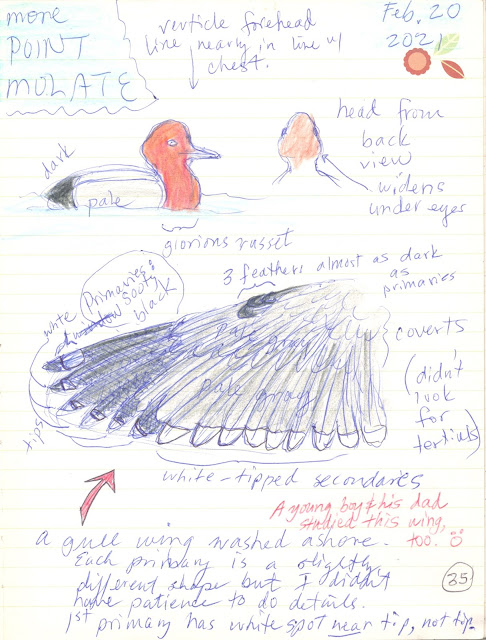 more
POINT
MOLATE
verticle forehead
line nearly in line w/
chest.
Feb. 20
2021
head from
back
view
widens
under eyes
dark
pale
glorious russet
3 feathers almost as dark
as
primaries
white
Primaries:
sooty
black
tips
pale gray
pale gray
coverts
(didn't
look
for
tertials)
white-tipped secondaries
A young boy & his dad
studied this wing,
too.
a gull wing washed ashore.
Each primary is a slightly
different shape but I didn't
have patience to do details.
1st primary has white spot near tip, not tip.
35